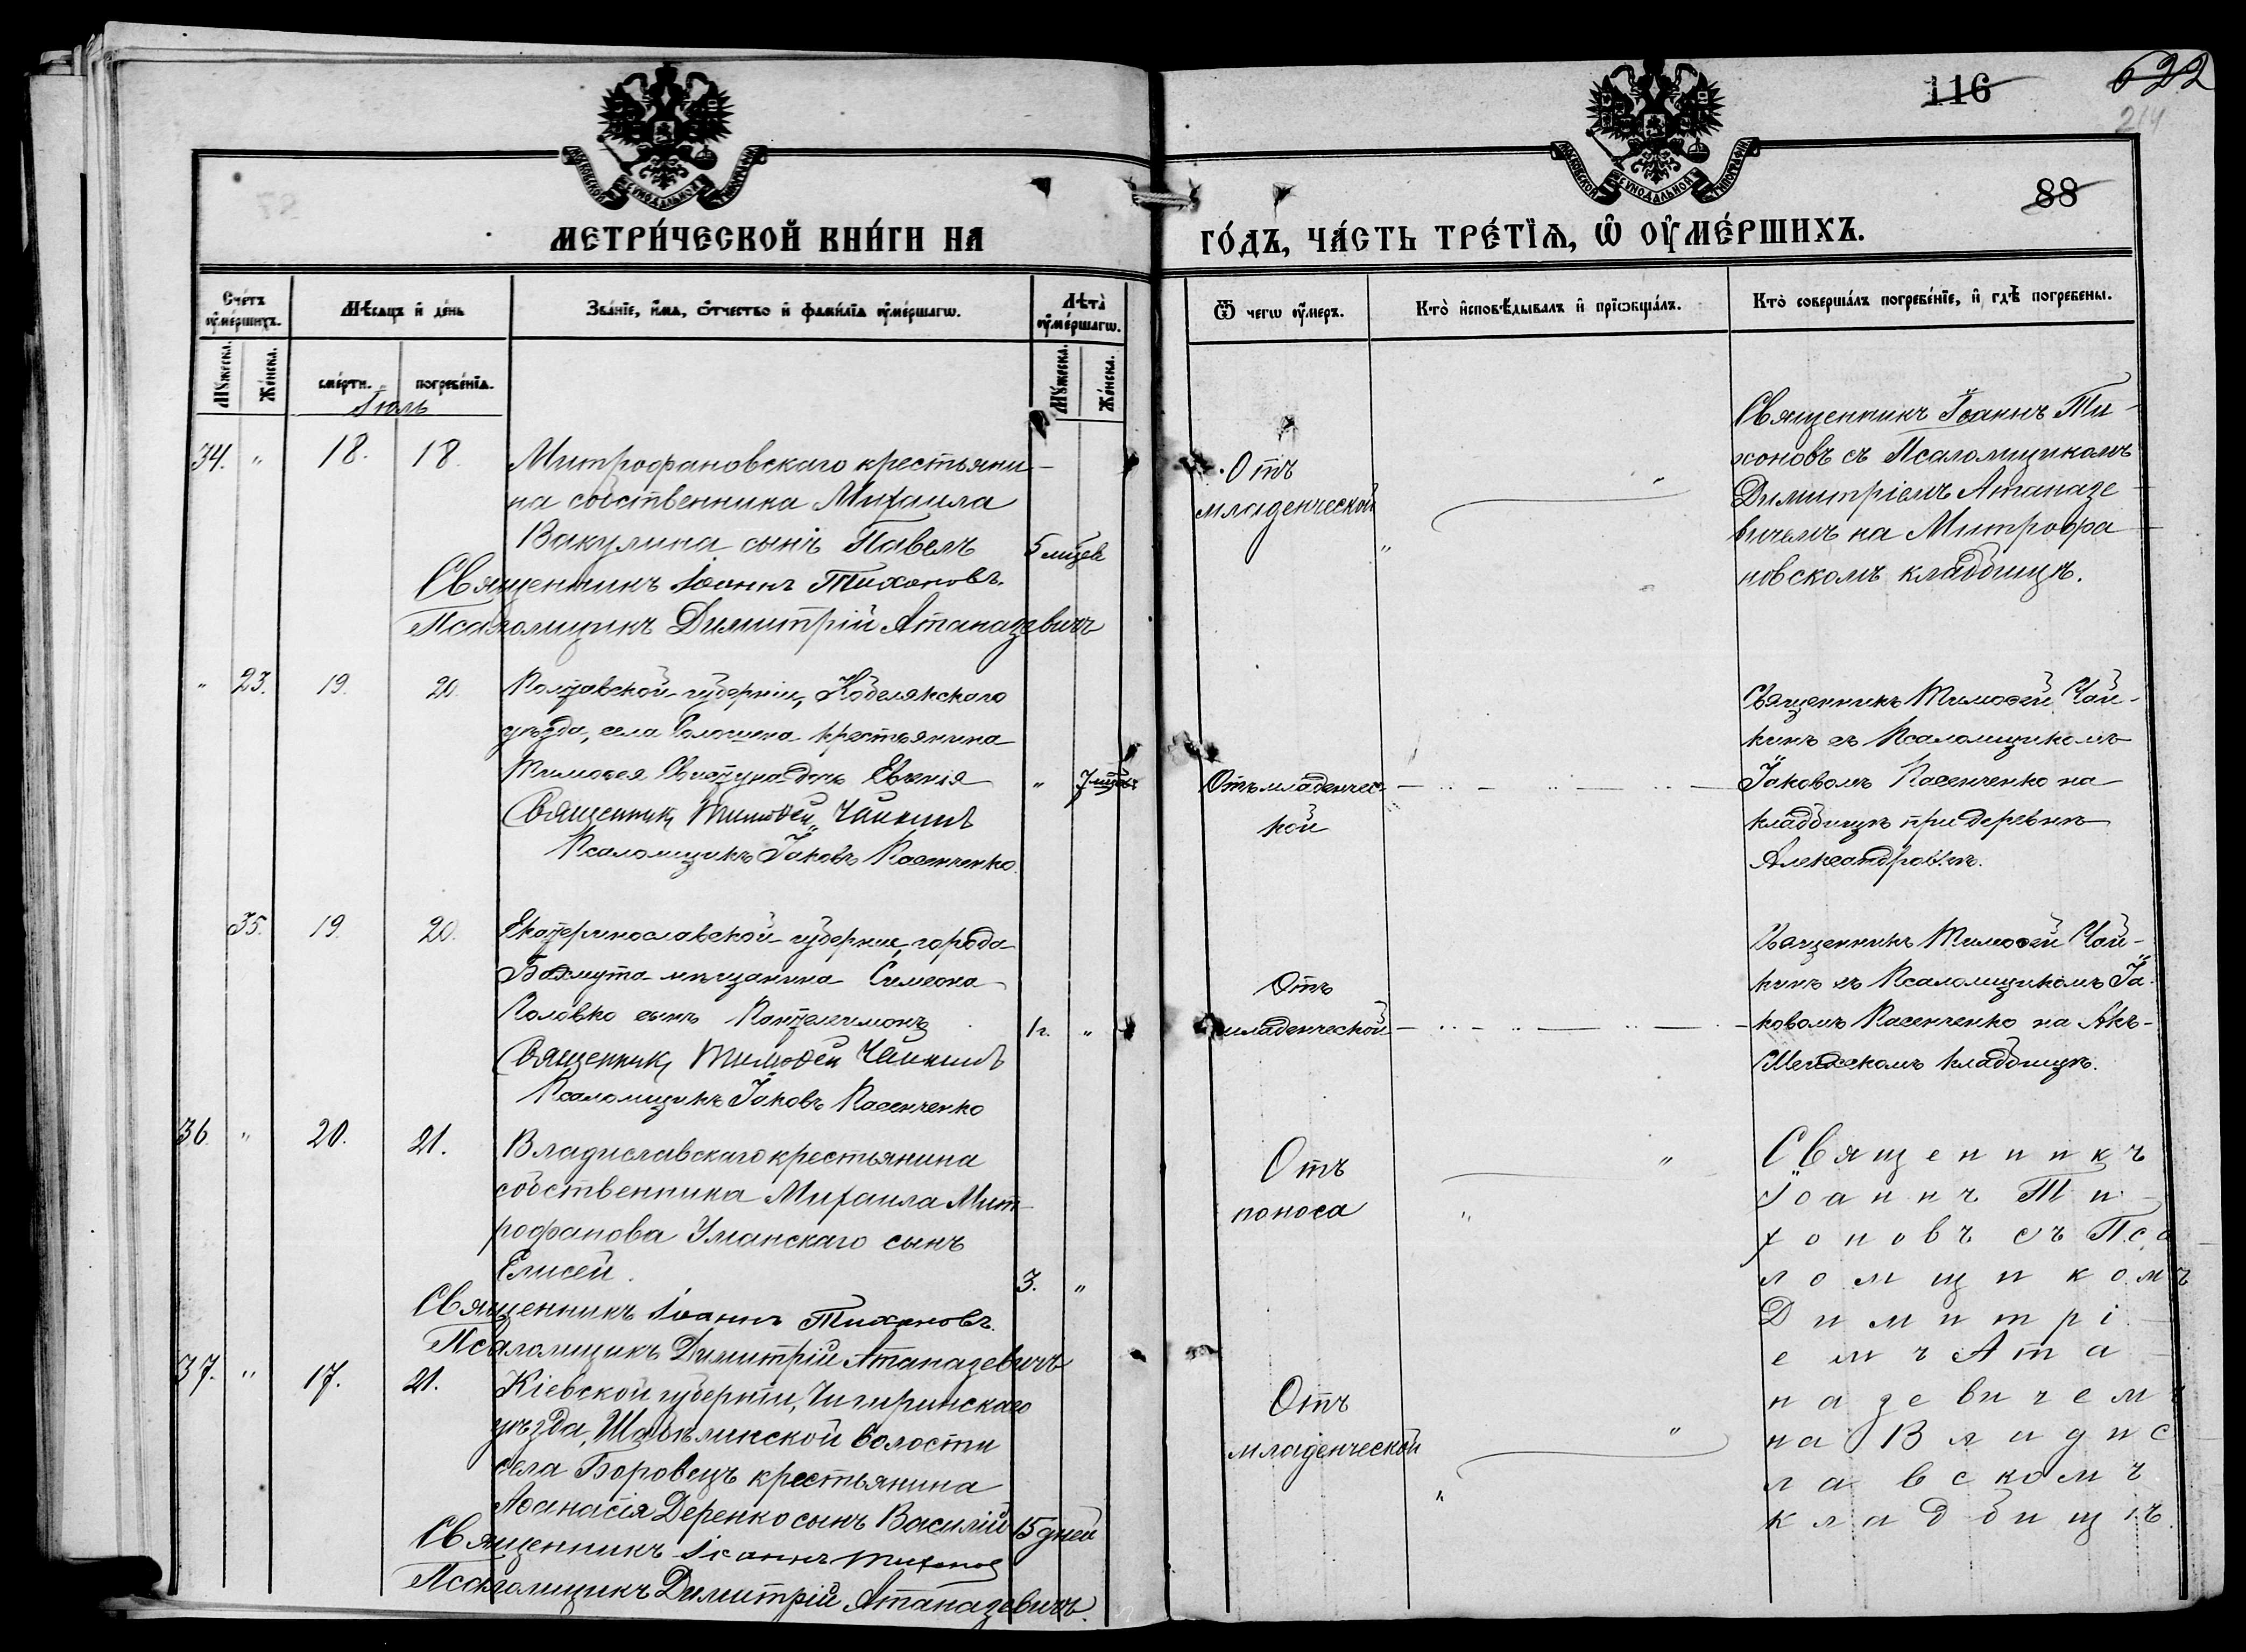 116
622
214
88
МОСКОВСКОЙ СѴНОДАЛЬНОЙ ТИПОГРАФІИ
МОСКОВСКОЙ СѴНОДАЛЬНОЙ ТИПОГРАФІИ
МЕТРИ́ЧЕСКОЙ КНИ́ГИ НА
ГО́ДЪ, ЧА́СТЬ ТРЕ́ТІѦ, Ѡ ОУ҆МЕ́РШИХЪ.
Сче́тъ оу҆ме́ршихъ.
Мѣсяцъ и҆ де́нь
Зва́нїе, и҆́мя, ѻ҆́тчество и҆ фамилїа оу҆ме́ршагѡ.
Лѣта̀ оу҆ме́ршагѡ.
Ѿ чегѡ оу҆́меръ.
Кто̀ и҆сповѣ́дывалъ и҆ прїѡбща́лъ.
Кто̀ соверша́лъ погребе́нїе, и҆ гдѣ̀ погребены.
Му́жеска.
Же́нска.
сме́рти.
погребе́нїя.
Му́жеска.
Же́нска.
Іюль
34. " 18. 18.
Митрофановскаго крестьяни-
на собственника Михаила
Вакулина сынъ Павелъ 5 мѣцев
Священникъ Іоаннъ Тихоновъ.
Псаломщикъ Димитрій Атаназевичъ
Отъ
младенческой
"
"
Священникъ Іоаннъ Ти-
хоновъ съ Псаломщикомъ
Димитріемъ Атаназе-
вичемъ на Митрофа-
новскомъ кладбищѣ.
" 23. 19. 20.
Полтавской губерніи, Кобелякскаго
уѣзда, села Солошина крестьянина
Тимоѳея Свистуна дочь Евгенія "
Священникъ Тимоѳей Чайкинъ
Псаломщикъ Іаковъ Касенченко.
Отъ младенчес-
кой
Священникъ Тимоѳей Чай-
кинъ съ Псаломщикомъ
Іаковомъ Касенченко на
кладбищѣ при деревнѣ
Александровкѣ.
35. 19. 20.
Екатеринославской губерніи, города
Бахмута мѣщанина Симеона
Головко сынъ Пантелеимонъ 1 г. "
Священникъ Тимоѳей Чайкинъ
Псаломщикъ Іаковъ Касенченко
Отъ
младенческой
Священникъ Тимоѳей Чай-
кинъ съ Псаломщикомъ Іа-
ковомъ Касенченко на Акъ-
Шеихскомъ кладбищѣ.
36 " 20. 21.
Владиславскаго крестьянина
собственника Михаила Мит-
рофанова Уманскаго сынъ
Елисей. 3. "
Священникъ Іоаннъ Тихоновъ.
Псаломщикъ Димитрій Атаназевичъ
Отъ
поноса
"
"
Священникъ
Іоаннъ Ти-
хоновъ съ Пса-
ломщикомъ
Димитрі-
емъ Ата-
назевичемъ
на Владис-
лавскомъ
кладбищѣ.
37. " 17. 21.
Кіевской губерніи, Чигиринскаго
уѣзда, волости
села Боровецъ крестьянина
Аѳанасія Деренко сынъ Василій 15 дней
Священникъ Іоаннъ Тихонов
Псаломщикъ Димитрій Атаназевичъ.
Отъ
младенческой
"
"